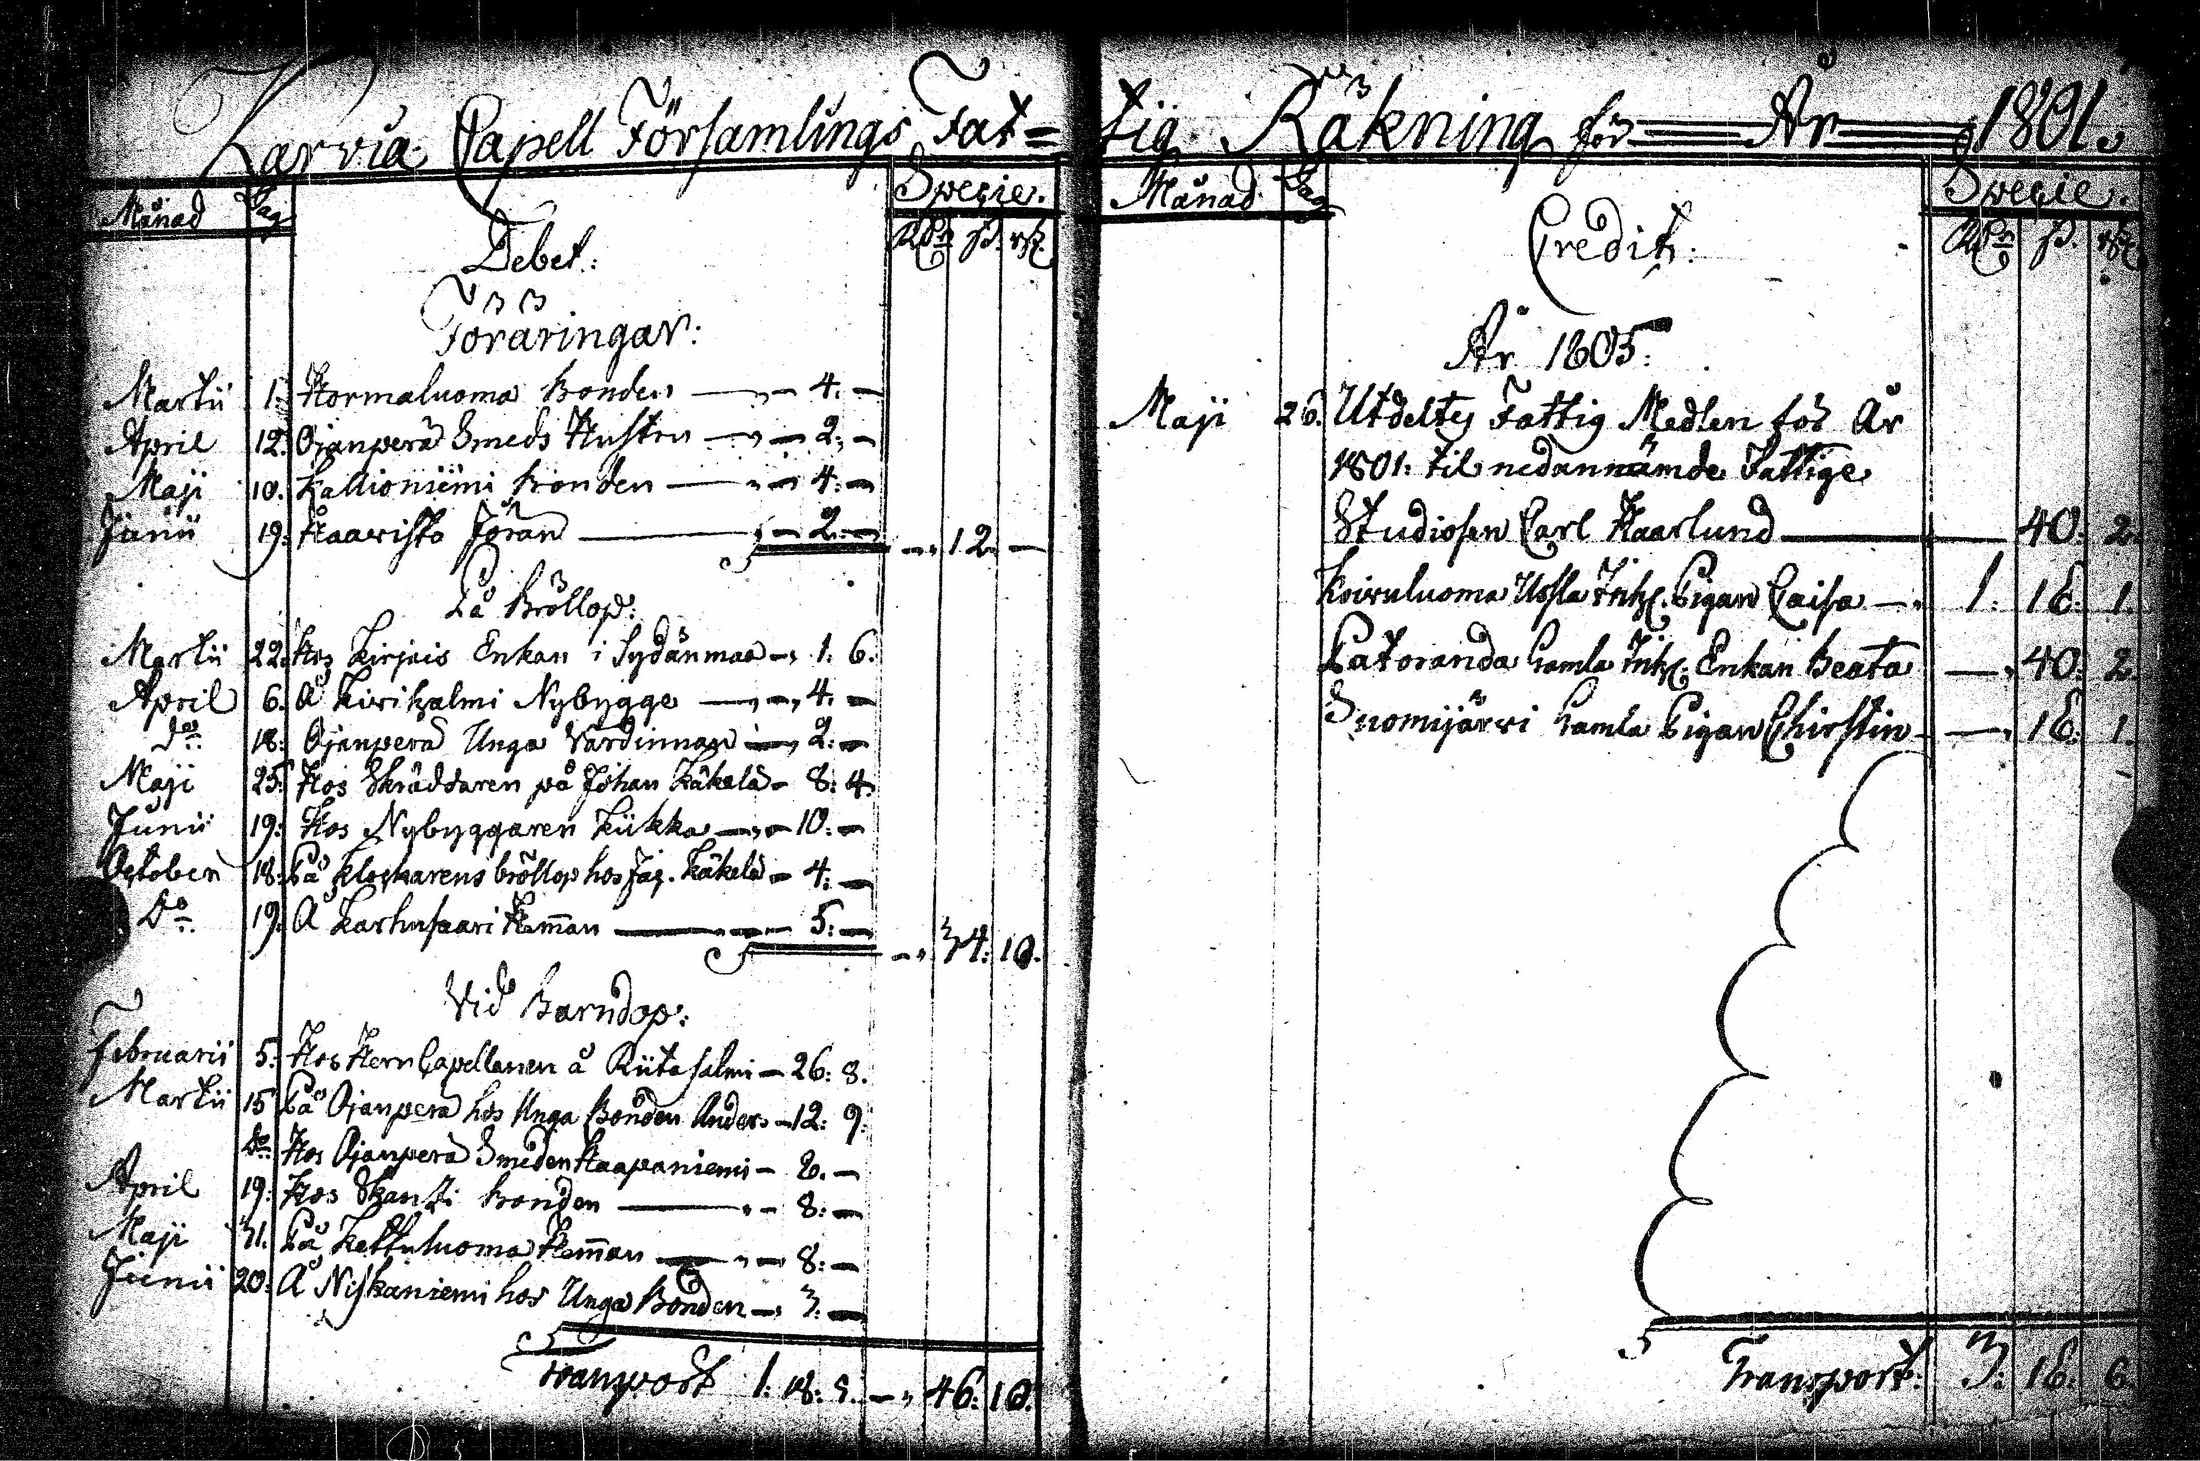 Karvia Capell Församlings Fat=
Månad Dag Specie.
Rdr ß. rst.
Debet:
Föräringar:
Martii 1. Hormaluoma bonden — 4. —
April 12. Ojanperä Smeds Hustru — 2. —
Maji 10. Kallioniemi bonden — 4. —
Junii 19. Haaristo Jöran — 2. — — 12. —
På Bröllop:
Martii 22. Hos Kirjais Enkan i Sydänmaa — 1. 6.
April 6. Å Kirikalmi Nybygge — 4. —
do. 18. Ojanperä Unga Värdinnan — 2. —
Maji 25. Hos Skräddaren på Johan Käkelä — 8. 4.
Junii 19. Hos Nybyggaren Kiikka — 10. —
October 18. På klockarens bröllop hos Jac. Käkelä — 4. —
Do. 19. Å Karhusaari Hem̄an — 5. — — 34: 10.
Vid Barndop:
Februarii 5. Hos Herr Capellanen å Riitasalmi — 26: 8.
Martii 15 På Ojanperä hos Unga Bonden Anders — 12: 9.
Do. Hos Ojanperä Smeden Haapaniemi — 8. —
April 19. Hos Skantzi bonden — 8. —
Maji 31. På Kettuluoma Hem̄an — 8: —
Junii 20. Å Niskaniemi hos Unga Bonden — 3. —
Transport 1: 18: 5. — 46: 10.
tig Räkning för År 1801.
Månad Dag Specie.
Rdr ß. rst.
Credit:
År 1805:
Maji 26. Utdeltes Fattig Medlen för År
1801: til nedannämde Fattige
Studiosen Carl Haarlund — 40: 2.
Koivuluoma Usla Pigan Caisa — 1: 16: 1.
Latoranda Gamla Enkan Beata — 40: 2.
Suomijärvi Gamla Pigan Chirstin — 16: 1.
Transport: 3: 16: 6.